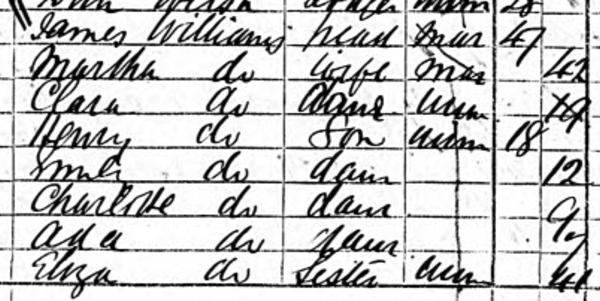 James Williams head mar 47
Martha do wife mar 42
Clara do daur unm 19
Henry do Son unm 18
do daur 12
Charlotte do daur 9
Ada do daur 7
Eliza do Sister unm 41